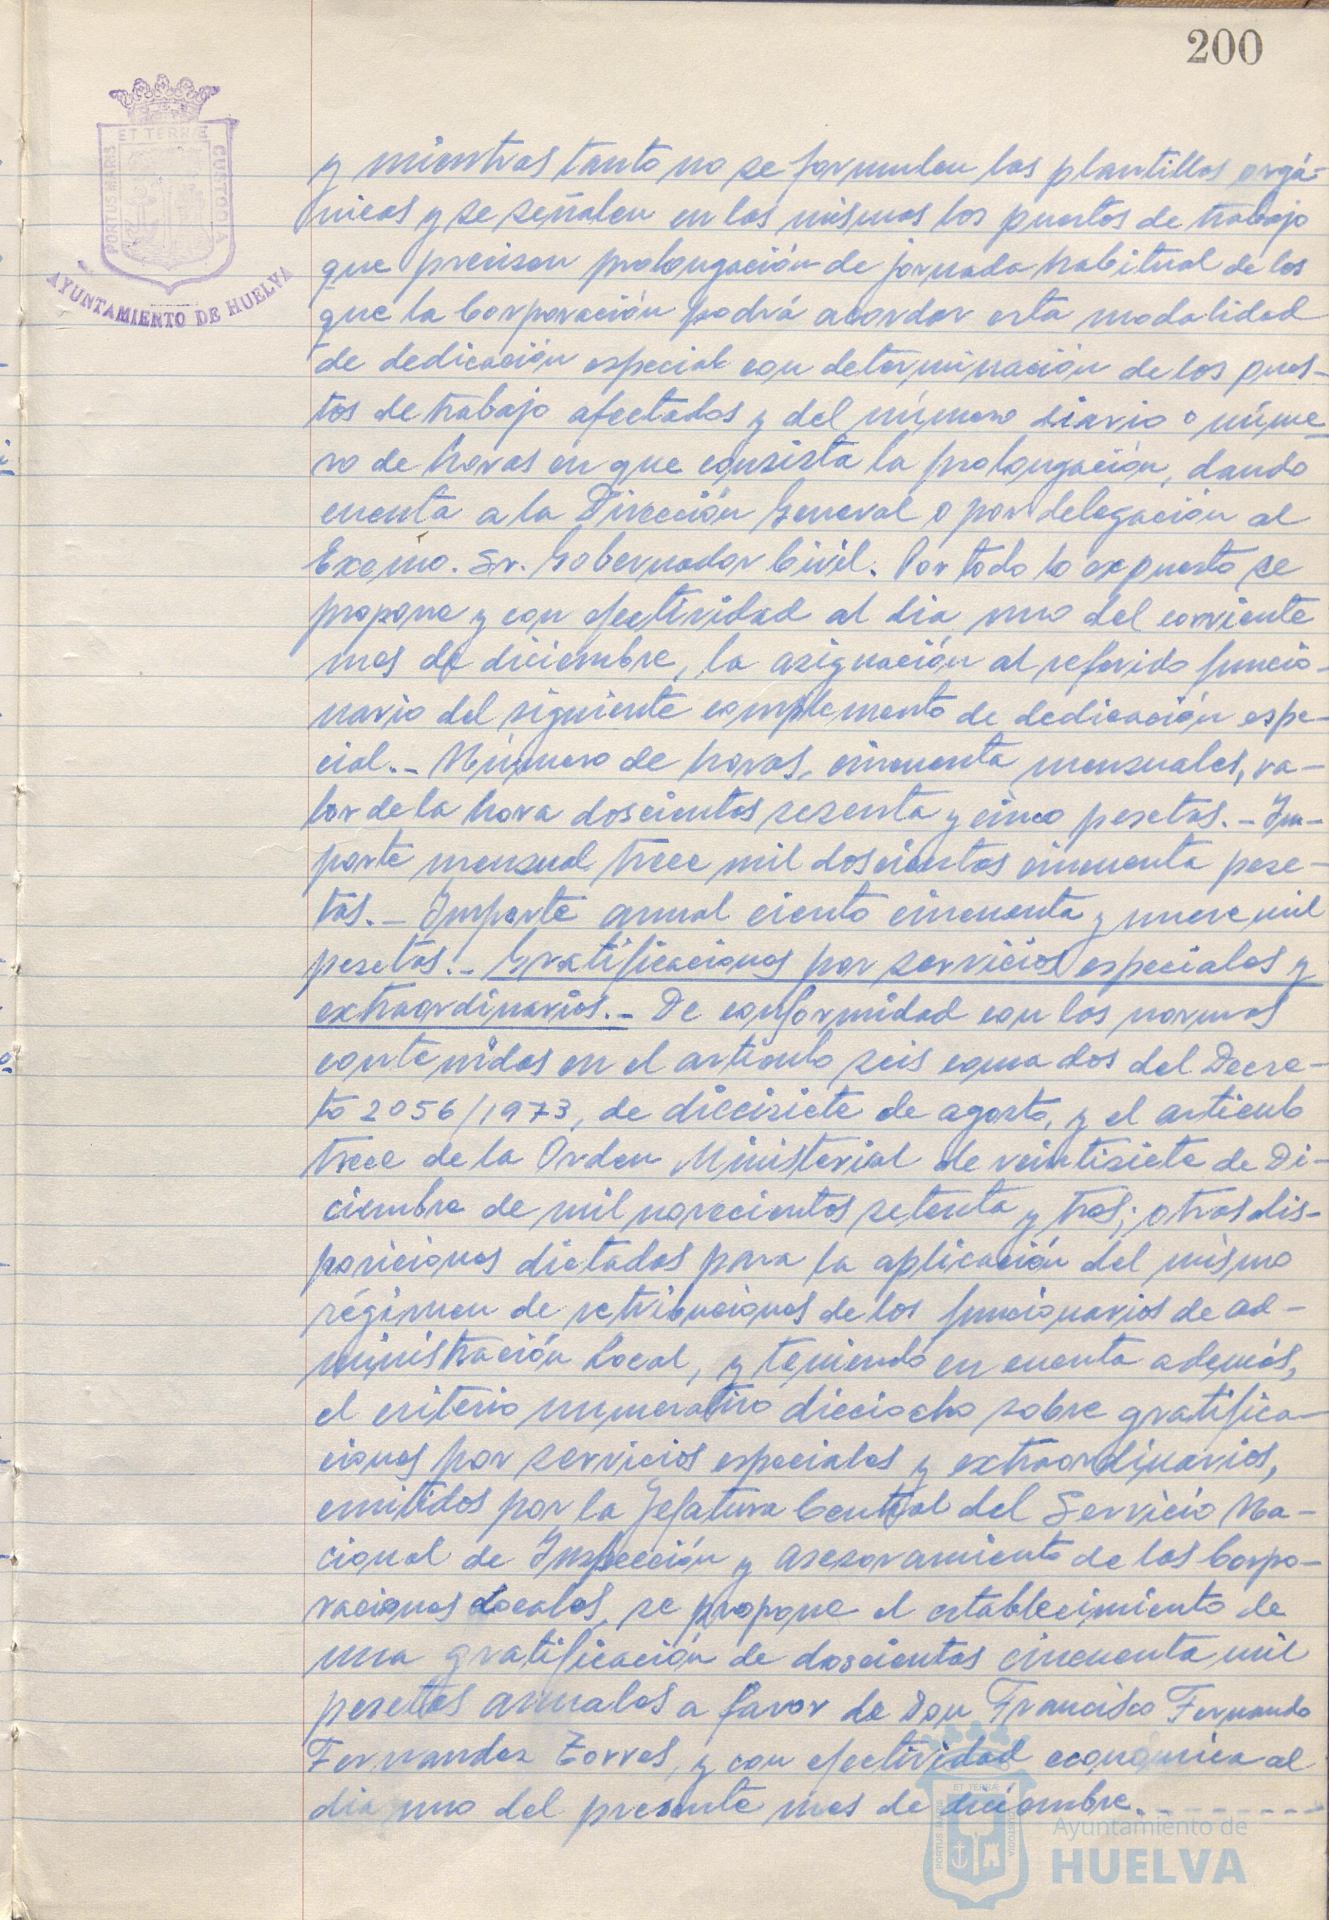 200
ET TERRÆ
PORTUS MARIS
CUSTODIA
AYUNTAMIENTO DE HUELVA
y mientras tanto no se formulen las plantillas orgá-
nicas y se señalen en las mismas los puestos de trabajo
que precisen prolongación de jornada habitual de los
que la Corporación podrá acordar esta modalidad
de dedicación especial con determinación de los pues-
tos de trabajo afectados y del número diario o núme
ro de horas en que consista la prolongación, dando
cuenta a la Dirección General o por delegación al
Excmo. Sr. Gobernador Civil. Por todo lo expuesto se
propone y con efectividad al dia uno del corriente
mes de diciembre, la asignación al referido funcio-
nario del siguiente complemento de dedicación espe-
cial.- Número de horas, cincuenta mensuales, va-
lor de la hora doscientas sesenta y cinco pesetas.- Im-
porte mensual trece mil doscientas cincuenta pese-
tas.- Importe anual ciento cincuenta y nueve mil
pesetas.- Gratificaciones por servicios especiales y
extraordinarios.- De conformidad con las normas
contenidas en el articulo seis coma dos del Decre-
to 2056/1973, de diecisiete de agosto, y el articulo
trece de la Orden Ministerial de veintisiete de Di-
ciembre de mil novecientos setenta y tres; otras dis-
posiciones dictadas para la aplicación del mismo
régimen de retribuciones de los funcionarios de ad-
ministración Local, y teniendo en cuenta además,
el criterio numerativo dieciocho sobre gratifica-
ciones por servicios especiales y extraordinarios,
emitidos por la Jefatura Central del Servicio Na-
cional de Inspección y asesoramiento de las Corpo-
raciones Locales, se propone el establecimiento de
una gratificación de doscientas cincuenta mil
pesetas anuales a favor de Don Francisco Fernando
Fernandez Torres, y con efectividad económica al
dia uno del presente mes de diciembre.- - - - - - - -
ET TERRÆ
PORTUS MARIS
CUSTODIA
Ayuntamiento de
HUELVA